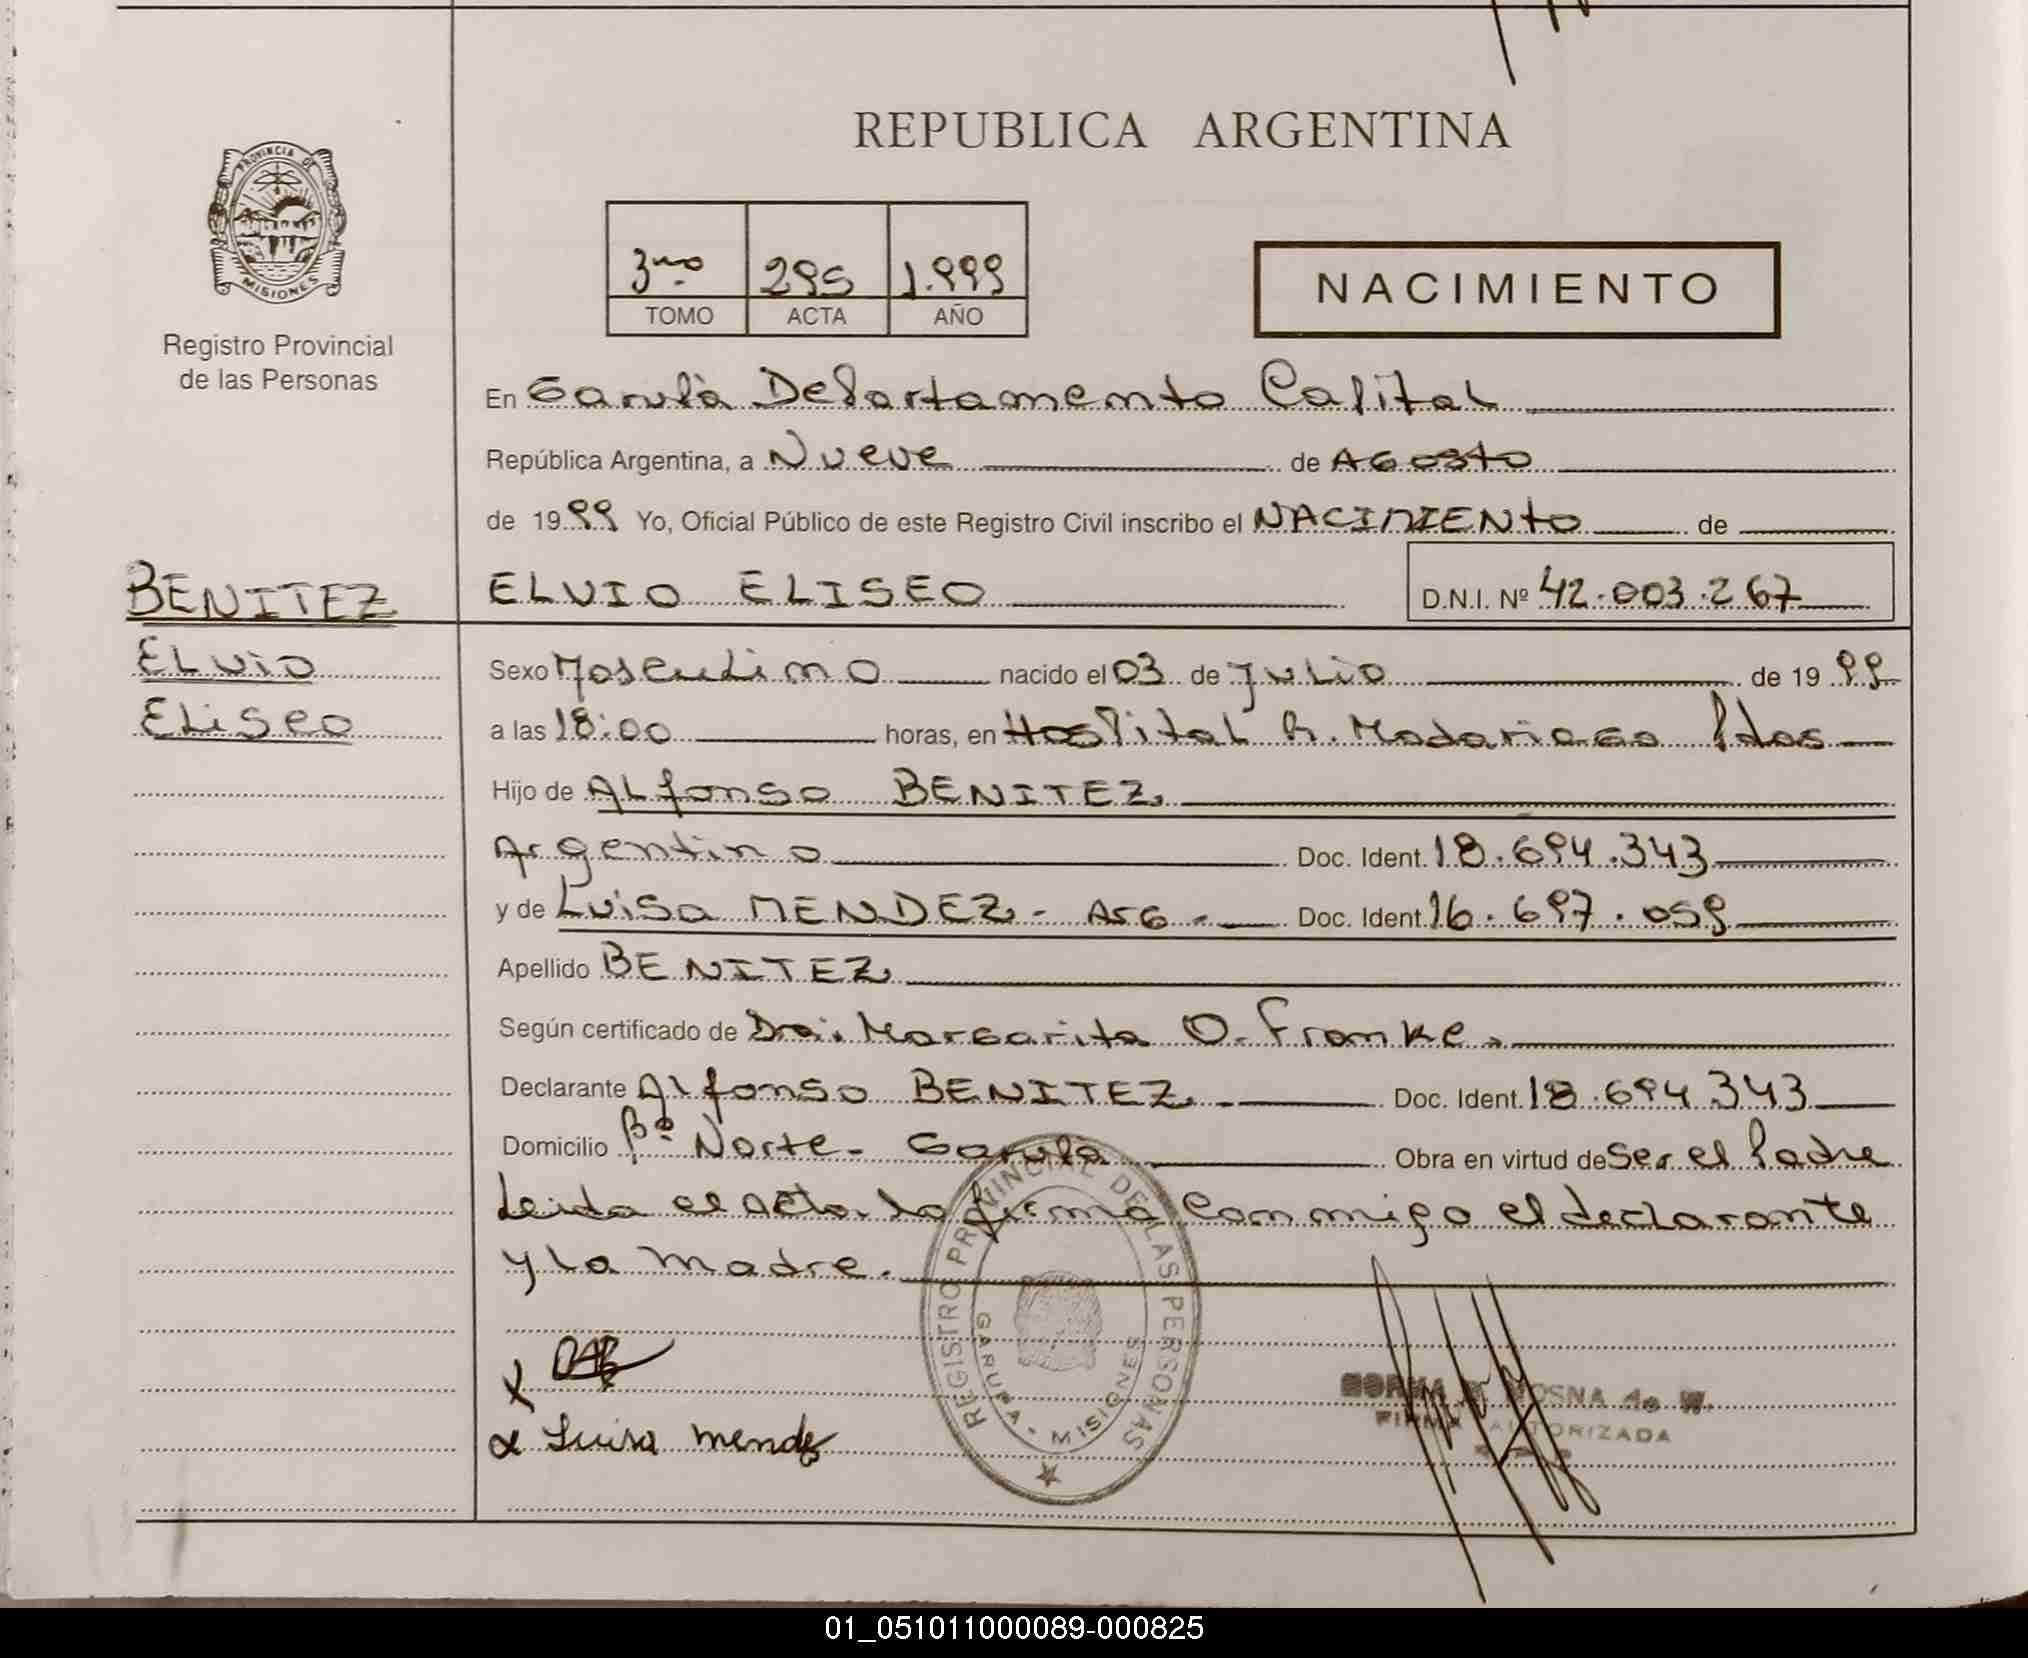 REPUBLICA ARGENTINA
PROVINCIA DE
MISIONES
Registro Provincial
de las Personas
3ro 295 1.999
TOMO ACTA AÑO
NACIMIENTO
En Garupà Departamento Capital
República Argentina, a Nueve de AGosto
de 1999 Yo, Oficial Público de este Registro Civil inscribo el NACIMIENto de
BENITEZ
ELVIO ELISEO
D.N.I. Nº 42.003.267
ELvio
ELiseo
Sexo Masculino nacido el 03 de Julio de 1999
a las 18:00 horas, en Hospital R. Madariaga Pdas
Hijo de ALfonso BENITEZ
Argentino Doc. Ident. 18.694.343
y de Luisa MENDEZ - ArG - Doc. Ident. 16.697.059
Apellido BENITEZ
Según certificado de Dra. Margarita O. Franke.
Declarante Alfonso BENITEZ. Doc. Ident. 18.694.343
Domicilio Bº Norte - Garupà Obra en virtud de Ser el Padre
Leida el acta, la firma conmigo el declarante
y la madre.
REGISTRO PROVINCIAL DE LAS PERSONAS
GARUPA - MISIONES
x
x Luisa mendez
NORMA MOSNA de W.
FIRMA AUTORIZADA
01_051011000089-000825